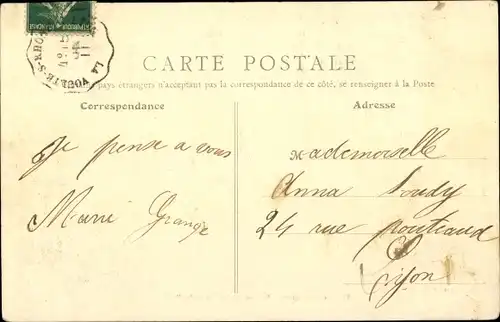 LA VOULTE-S-RHÔ
CARTE POSTALE
pays étrangers n'acceptant pas la correspondance de ce côté, se renseigner à la Poste
Correspondance
Adresse
Je pense a vous
Marie Grange
Mademoiselle
Anna
24 rue
Lyon